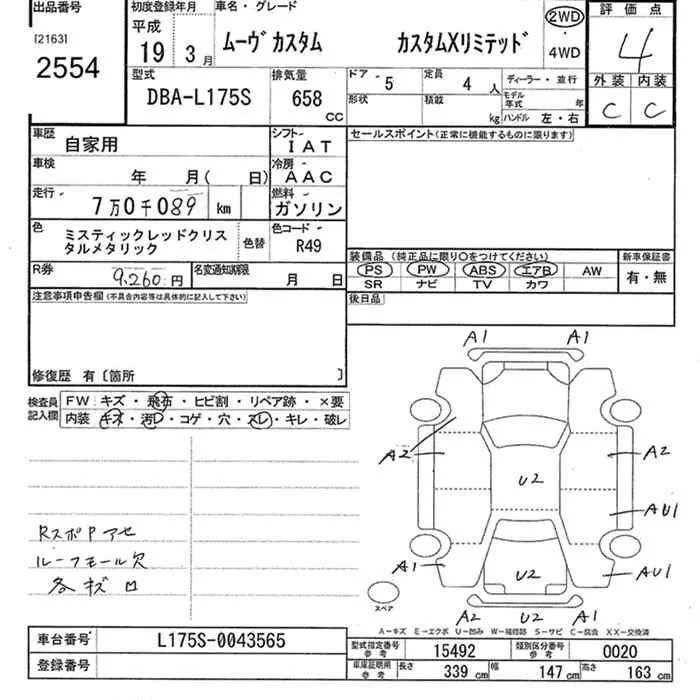 出品番号
[2163]
2554
初度登録年月
平成
19 3月
車名・グレード
ムーヴ カスタム カスタムXリミテッド
2WD
・
4WD
評価点
4
外装 内装
C C
型式
DBA-L175S
排気量
658
CC
ドア 5
定員 4 人
形状
積載 kg
ディーラー・並行
モデル年式 年
ハンドル 左・右
車歴
自家用
シフト
IAT
車検
年 月( 日)
冷房
AAC
走行
7万0千089 km
燃料
ガソリン
色
ミスティックレッドクリスタルメタリック
色替
色コード
R49
R券
9,260円
名変通知期限
月 日
セールスポイント(正常に機能するものに限ります)
装備品 (純正品に限り○をつけてください)
PS PW ABS エアB AW
SR ナビ TV カワ
新車保証書
有・無
後日品
注意事項申告欄(不具合内容等は具体的に記入して下さい)
修復歴 有〔箇所 〕
検査員記入欄
FW キズ・飛石・ヒビ割・リペア跡・×要
内装 キズ・汚レ・コゲ・穴・スレ・キレ・破レ
RスポPアセ
ルーフモール欠
各キズ ロ
A1 A1
A2 A2
U2
AU1
A1 AU1
U2
A2 U2 A1
スペア
A−キズ E−エクボ U−凹み W−補修跡 S−サビ C−腐食 XX−交換済
車台番号
L175S-0043565
登録番号
型式指定番号 参考
15492
類別区分番号 参考
0020
車庫証明用 参考
長さ 339 cm 幅 147 cm 高さ 163 cm